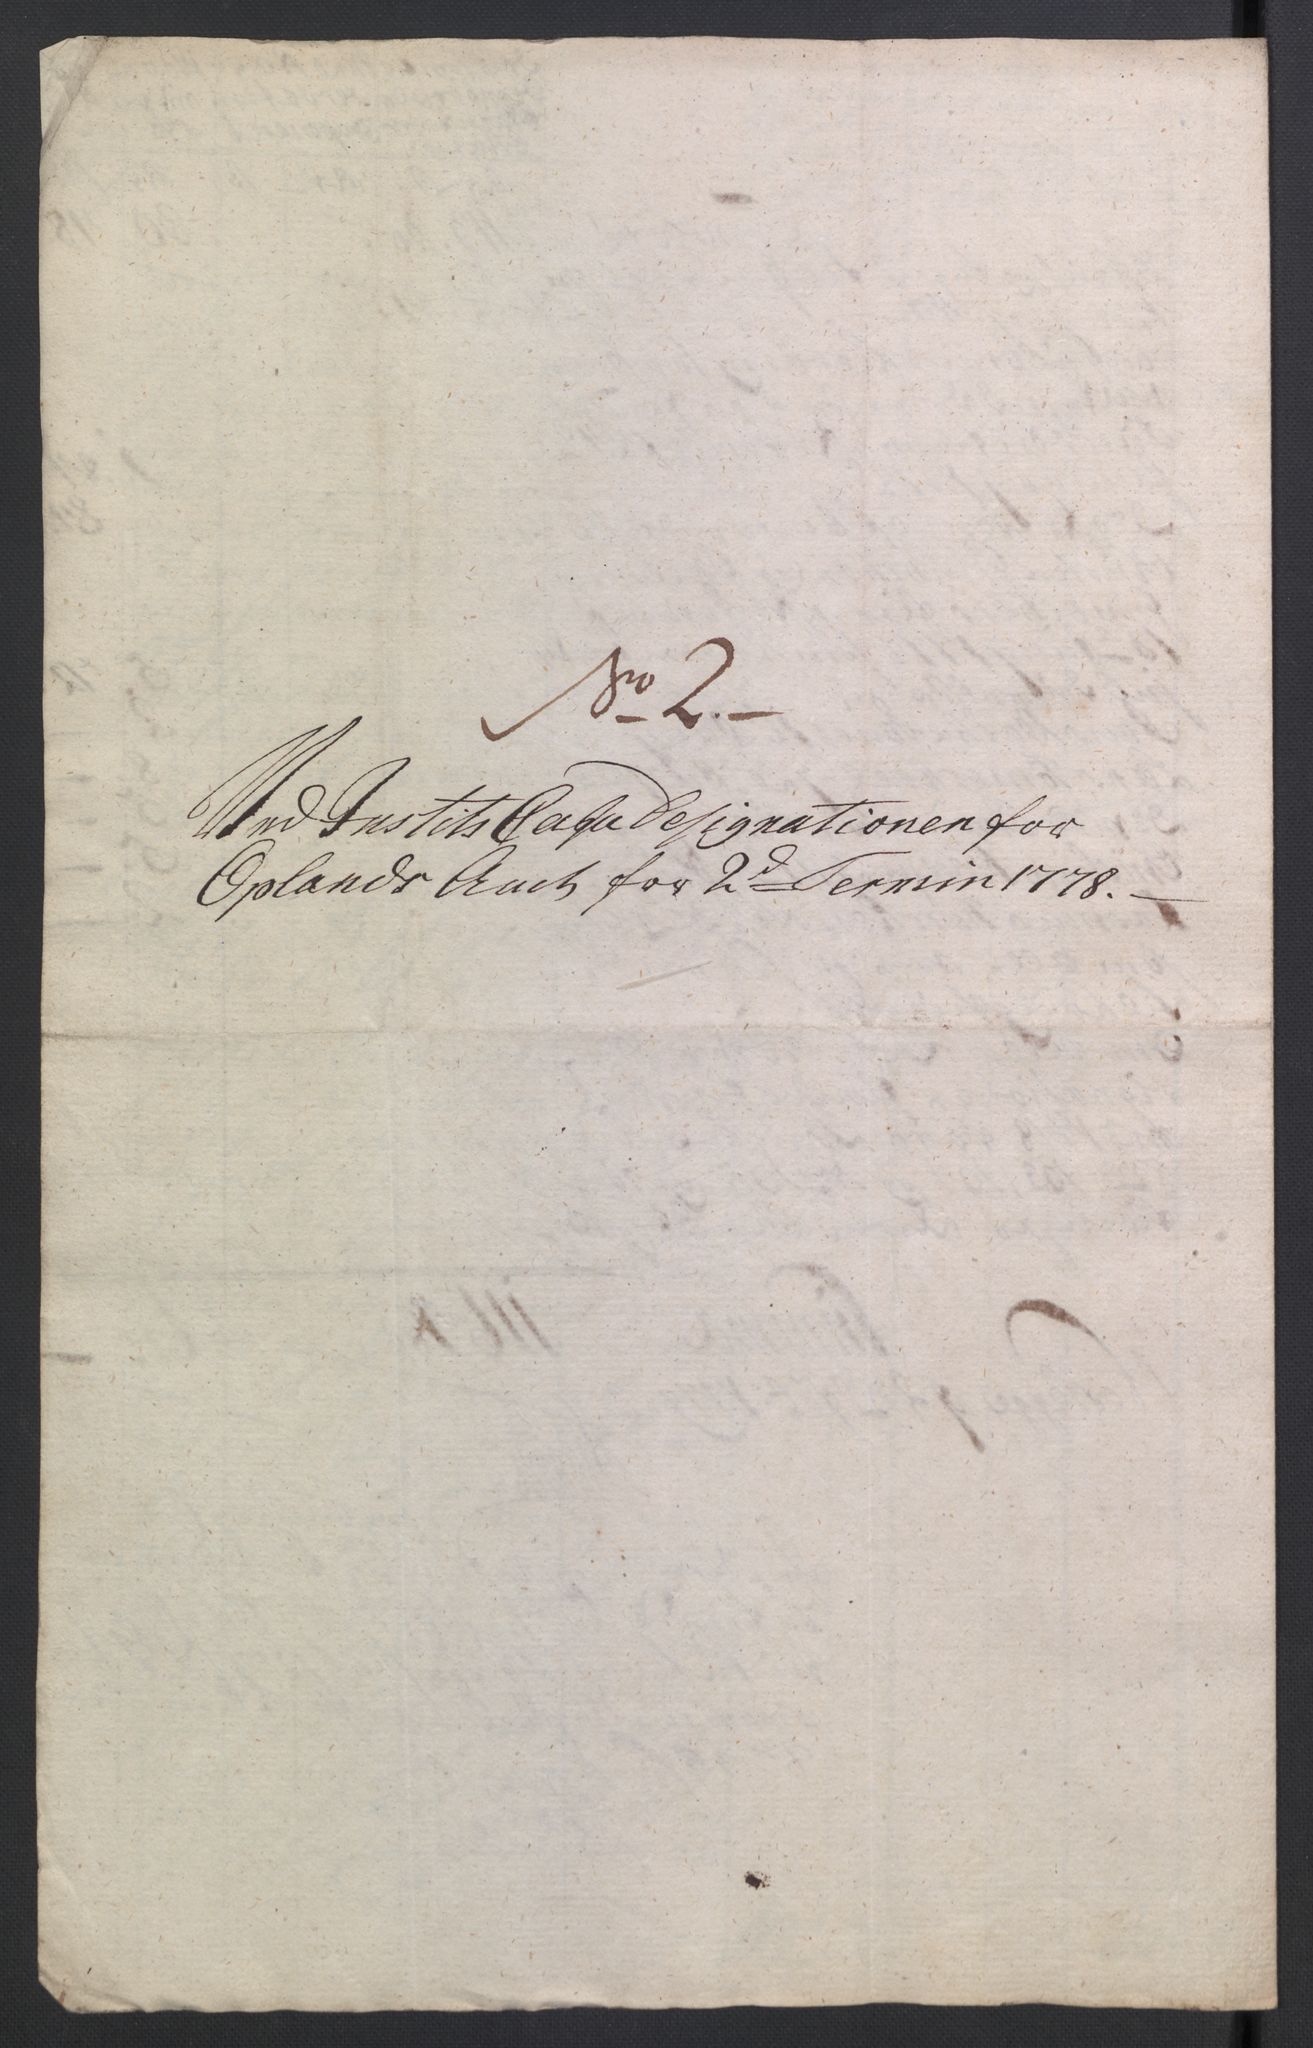 No 2.
Ved Justits Cassa Designationen for
Oplands Amts for 2d Termin 1778.